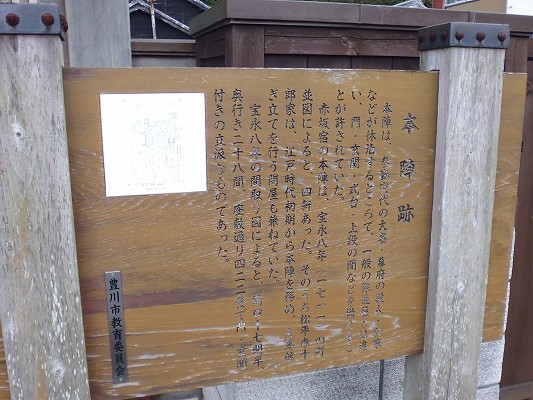 本陣跡
本陣は、参勤交代の大名・幕府の役人・公家
などが休泊するところで、一般の旅籠屋と
い、門・玄関・式台・上段の間などを備える
とが許されていた。
赤坂宿の本陣は、宝永八年（一七一一）の町
並図によると、四軒あった。そのうち松平彦十
郎家は、江戸時代初期から本陣を務め、
ぎ立てを行う問屋も兼ねていた。
宝永八年の間取り図によると、間口十七間半
奥行き二十八間、座敷通り四二二畳で門・玄関
付きの立派なものであった。
豊川市教育委員会